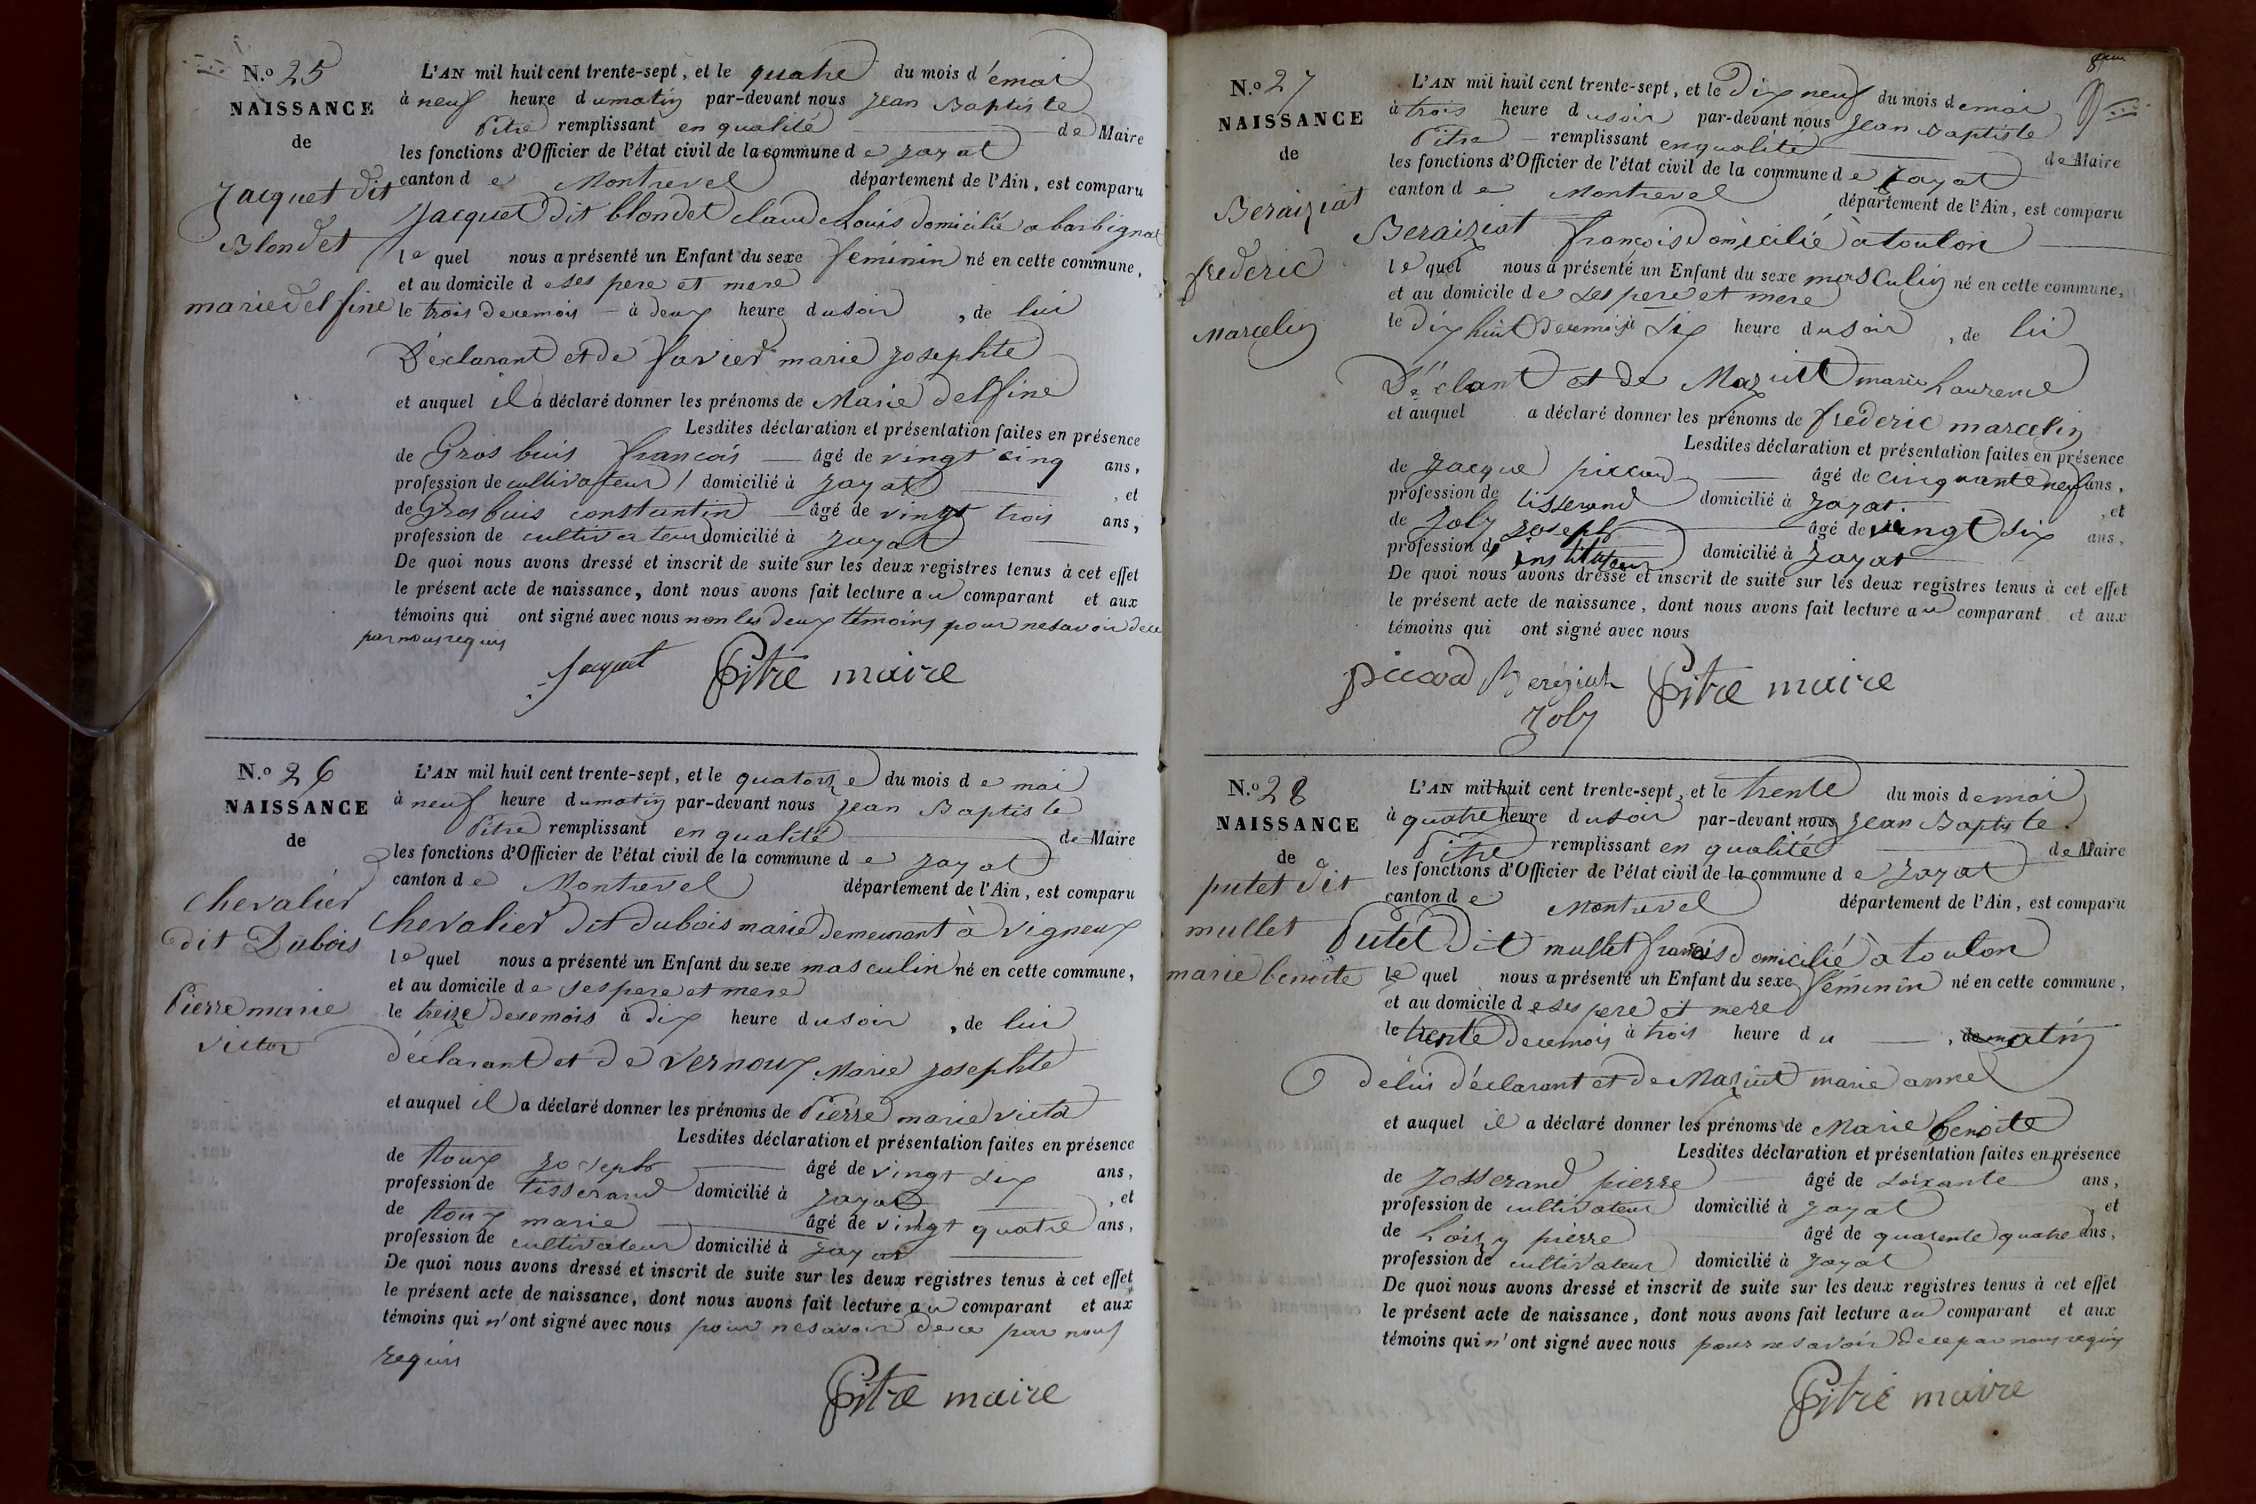 N.o 25
NAISSANCE
de
Jacquet dit
Blondet
marie delfine
L'AN mil huit cent trente-sept, et le quatre du mois d emai
à neuf heure dumatin par-devant nous Jean Baptiste
Pitre remplissant en qualité de Maire
les fonctions d'Officier de l'état civil de la commune d e jayat
canton d e Montrevel département de l'Ain, est comparu
Jacquet dit blondet claude Louis domicilié a barbignat
le quel nous a présenté un Enfant du sexe féminin né en cette commune,
et au domicile d eses pere et mere
le trois decemois à deux heure dusoir, de lui
Déclarant et de favier marie josephte
et auquel il a déclaré donner les prénoms de Marie delfine
Lesdites déclaration et présentation faites en présence
de Gros buis francois âgé de vingt cinq ans,
profession de cultivateur domicilié à jayat, et
de Gros buis constantin âgé de vingt trois ans,
profession de cultivateur domicilié à jayat
De quoi nous avons dressé et inscrit de suite sur les deux registres tenus à cet effet
le présent acte de naissance, dont nous avons fait lecture au comparant et aux
témoins qui ont signé avec nous non les deux témoins pour nesavoir dece
par nous requis
Jaquet Pitre maire
N.o 26
NAISSANCE
de
chevalier
dit Dubois
Pierre marie
victor
L'AN mil huit cent trente-sept, et le quatorze du mois d e mai
à neuf heure dumatin par-devant nous Jean Baptiste
Pitre remplissant en qualité de Maire
les fonctions d'Officier de l'état civil de la commune d e jayat
canton d e Montrevel département de l'Ain, est comparu
chevalier dit dubois marie demeurant à vigneux
le quel nous a présenté un Enfant du sexe masculin né en cette commune,
et au domicile d e ses pere et mere
le treize decemois à dix heure dusoir, de lui
déclarant et de vernoux Marie josephte
et auquel il a déclaré donner les prénoms de Pierre marie victor
Lesdites déclaration et présentation faites en présence
de Roux joseph âgé de vingt six ans,
profession de tisserand domicilié à jayat, et
de Roux marie âgé de vingt quatre ans,
profession de cultivateur domicilié à jayat
De quoi nous avons dressé et inscrit de suite sur les deux registres tenus à cet effet
le présent acte de naissance, dont nous avons fait lecture au comparant et aux
témoins qui n'ont signé avec nous pour nesavoir dece par nous
requis
Pitre maire
N.o 27
NAISSANCE
de
Beraiziat
frederic
Marcelin
L'AN mil huit cent trente-sept, et le Dix neuf du mois demai
à trois heure dusoir par-devant nous Jean Baptiste
Pitre remplissant enqualité de Maire
les fonctions d'Officier de l'état civil de la commune d e jayat
canton d e Montrevel département de l'Ain, est comparu
Beraiziat francois domicilié à toulon
le quel nous a présenté un Enfant du sexe masculin né en cette commune,
et au domicile de ses pere et mere
le dix huit decemois à six heure dusoir, de lui
Déclant et de Maziut marie Laurence
et auquel a déclaré donner les prénoms de frederic marcelin
Lesdites déclaration et présentation faites en présence
de Jacque piccard âgé de cinquante neuf ans,
profession de tisserand domicilié à jayat, et
de Joly joseph âgé de vingt six ans,
profession de instituteur domicilié à jayat
De quoi nous avons dressé et inscrit de suite sur les deux registres tenus à cet effet
le présent acte de naissance, dont nous avons fait lecture au comparant et aux
témoins qui ont signé avec nous
piccard Beréziat Pitre maire
Joly
N.o 28
NAISSANCE
de
putet dit
mullet
marie benoite
L'AN mil huit cent trente-sept, et le trente du mois demai
à quatre heure dusoir par-devant nous Jean Baptiste
Pitre remplissant en qualité de Maire
les fonctions d'Officier de l'état civil de la commune d e jayat
canton d e Montrevel département de l'Ain, est comparu
Putet Dit mullet francois domicilié à toulon
le quel nous a présenté un Enfant du sexe féminin né en cette commune,
et au domicile d eses pere et mere
le trente decemois à trois heure du, de matin
de lui déclarant et de Maziut marie anne
et auquel il a déclaré donner les prénoms de Marie benoite
Lesdites déclaration et présentation faites en présence
de Josserand pierre âgé de soixante ans,
profession de cultivateur domicilié à jayat, et
de Loisy pierre âgé de quarente quatre ans,
profession de cultivateur domicilié à jayat
De quoi nous avons dressé et inscrit de suite sur les deux registres tenus à cet effet
le présent acte de naissance, dont nous avons fait lecture au comparant et aux
témoins qui n'ont signé avec nous pour nesavoir dece par nous requis
Pitre maire